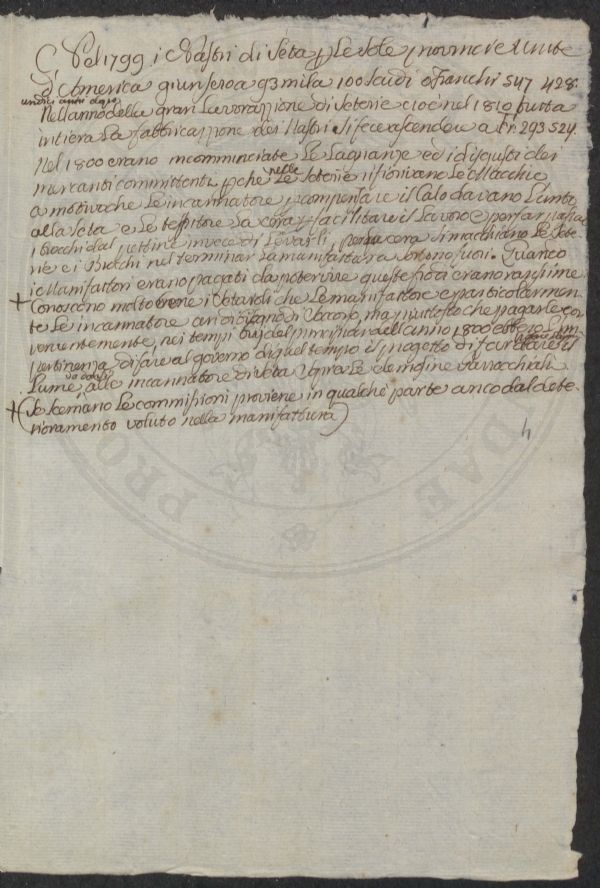 Nel 1799 i Nastri di Seta p le sole provincie Unite
d'America giunsero a 93 mila 100 Scudi o franchi 547 428.
undici anni dopo
Nell'anno della gran Lavorazzione di Seterie cioè nel 1810 tutta
intiera La fabbricazzione dei Nastri si fece ascendere a Fr. 293 524.
Nel 1800 erano incomminciate Le Lagnanze ed i disgusti dei
nelle
mercanti committenti, pche Le Seterie rifiorivano Le Macchie
a motivo che Le incannatore p compensare il Calo davano L'unto
alla Seta e Le tessitore La cera p facilitare il Lavoro e p far passar
i Brochi dal pettine invece di Levarli, per la cera si macchiano Le Sete-
rie e i Brochi nel terminar La manifattura sortono fuori. Quando
i Manifattori erano pagati da poter vivere queste frodi erano rarissime
+ Conoscono molto bene i Votardi che Le manifattore e particolarmen-
te Le incannatore an di bisogno di Soccorso, ma piuttosto che pagarle con-
venientemente, nei tempi del principiar dell'anno 1800 ebbero L'im-
pertinenza di fare al governo di quel tempo il progetto di far dare il
Lume, alle incannatore di Seta sopra Le elemosine Parrocchiali
+ (Se scemano Le commissioni proviene in qualche parte anco dal dete-
rioramento voluto nella manifattura)
4
PRO DAE